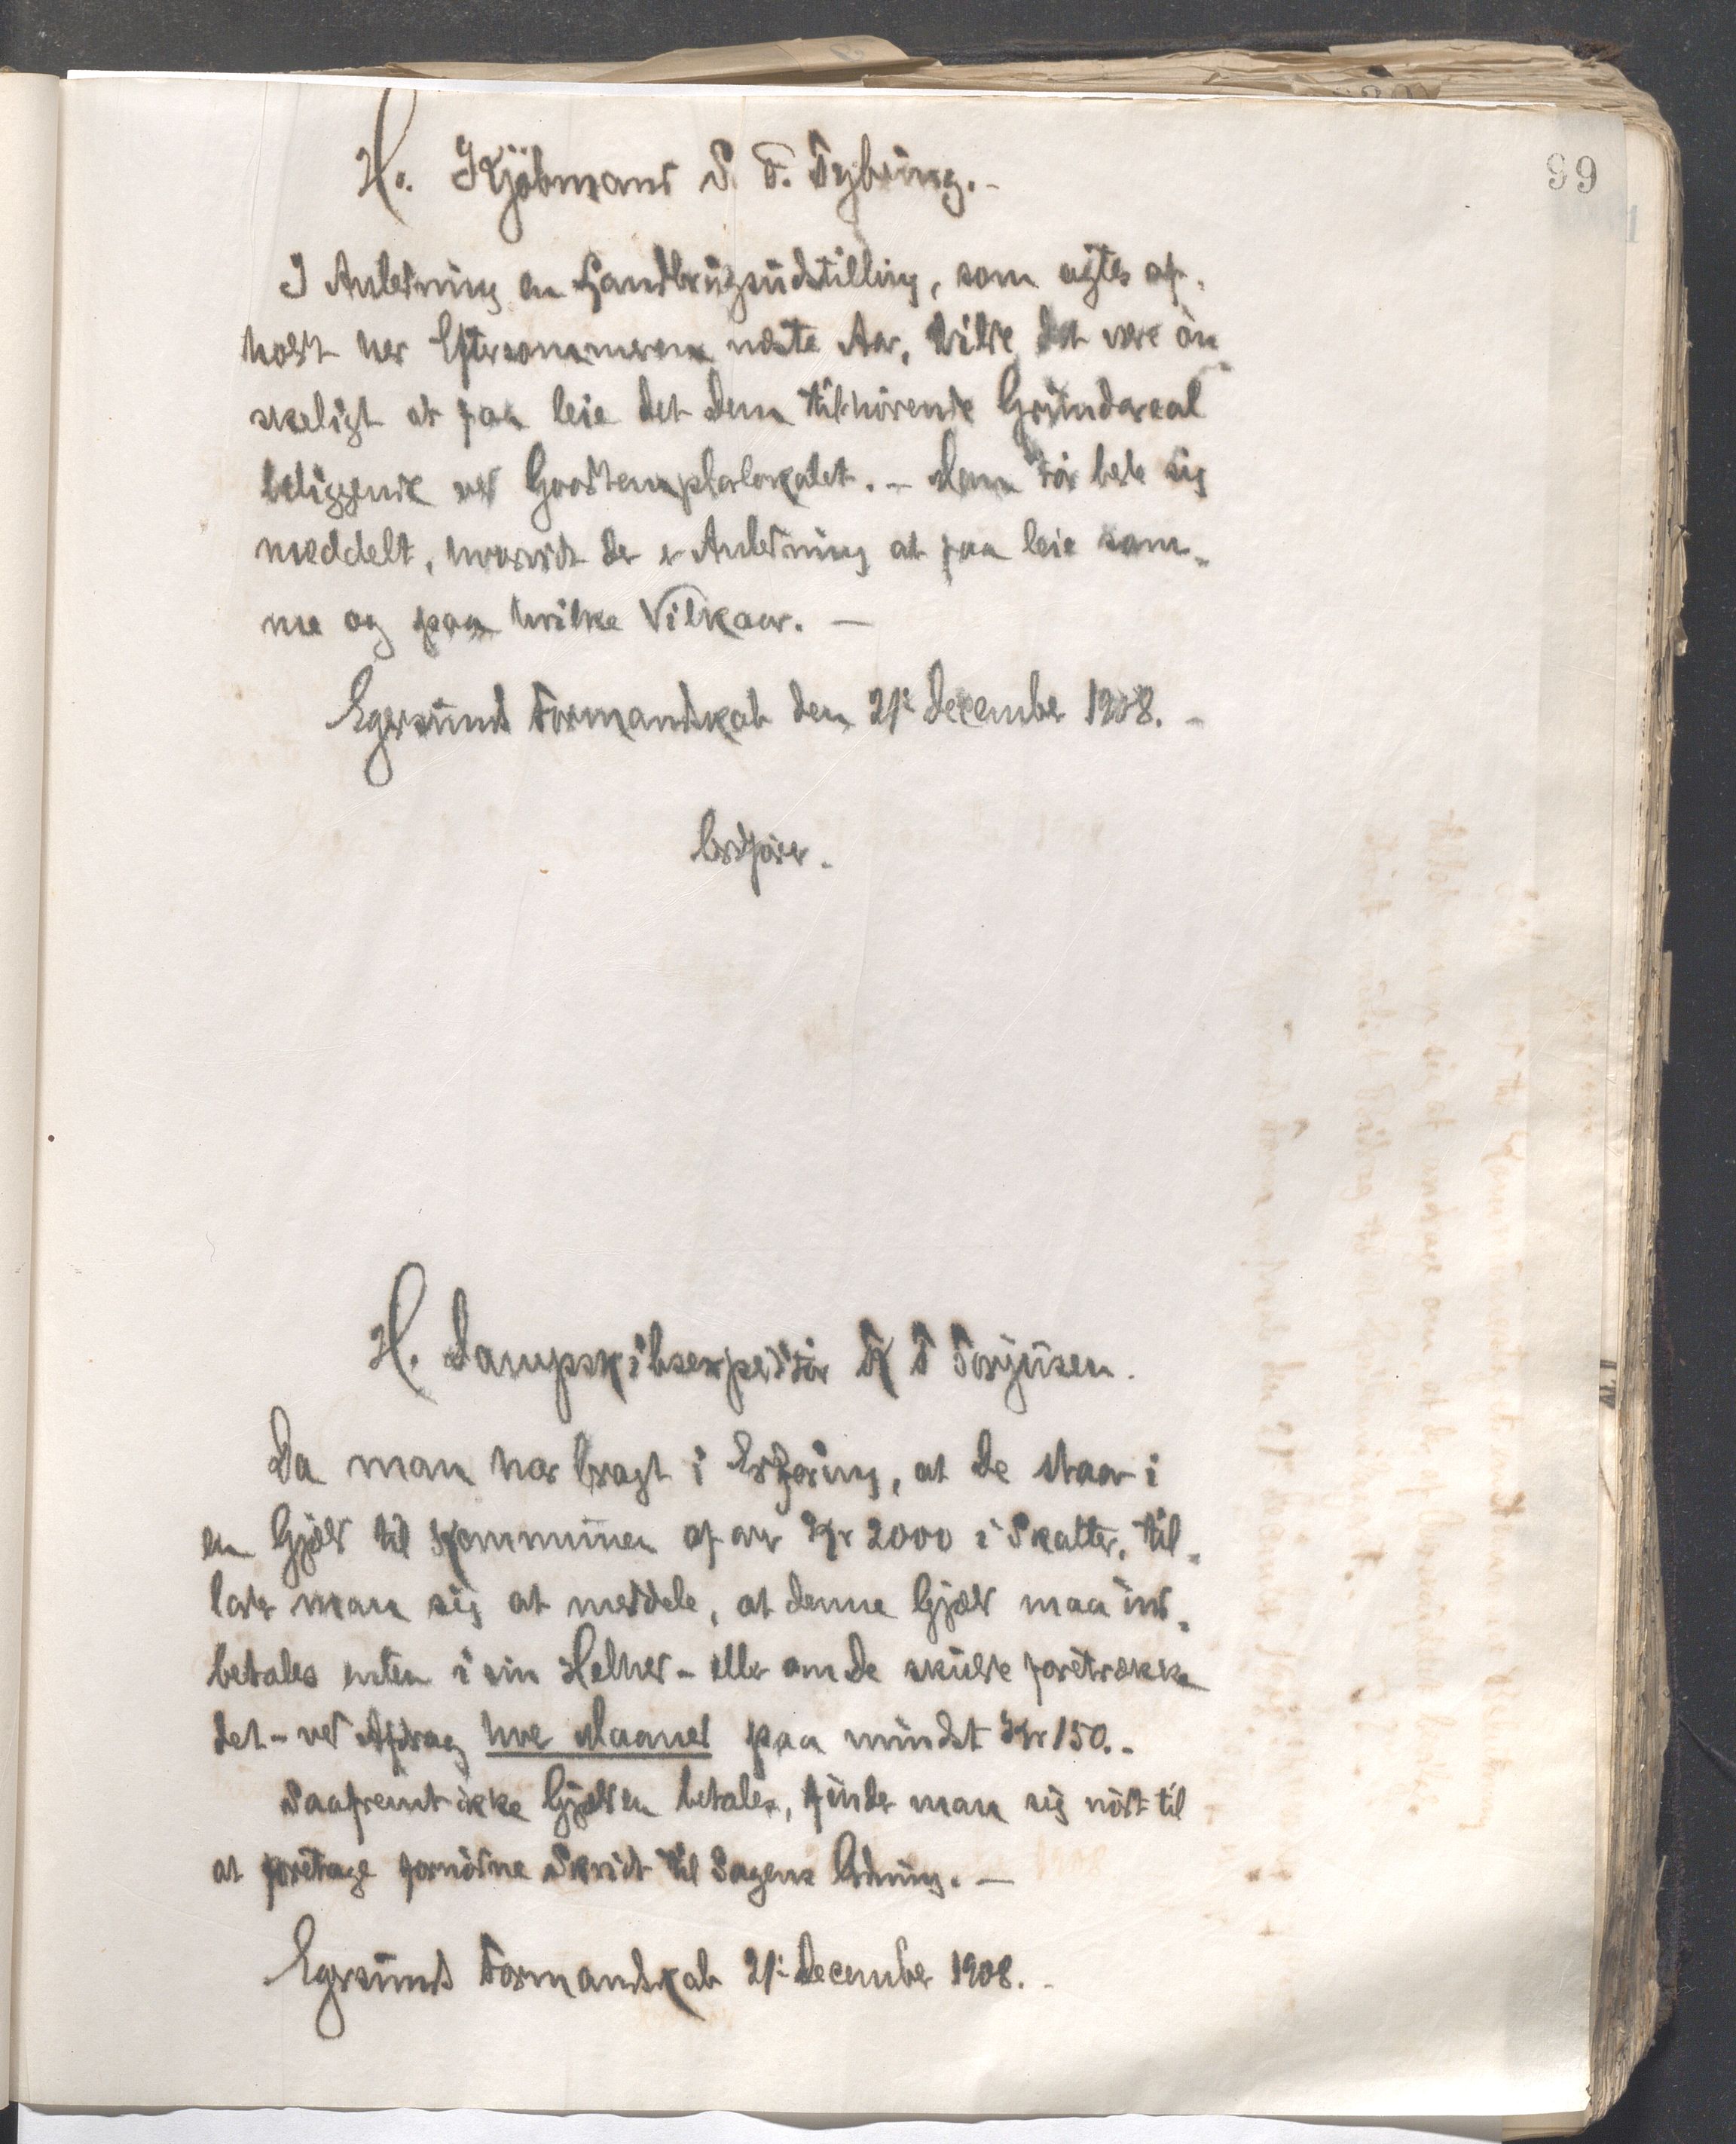 99
H. Kjöbmand S. T. Tybring. -
I Anledning en Handbrugsudstilling, som agtes af-
holdt her Eftersommeren næste Aar, vilde det være ön-
skeligt at faa leie det Dem tilhörende Grundareal
beliggende ved Goodtemplarlokalet. - Man tör bede sig
meddelt, hvorvidt der er Anledning at faa leie sam-
me og paa hvilke Vilkaar. -
Egersund Formandskab den 21: December 1908. -
H. Dampskibsexpeditör T Torjusen.
Da man har bragt i Erfaring, at De staar i
en Gjæld til Kommunen af over Kr 2000 i Skatter, til-
lader man sig at meddele, at denne Gjæld maa ind-
betales enten i sin Helhed - eller om De skulde foretrække
det - ved Afdrag hver Maaned paa mindst Kr 150. -
Saafremt ikke Gjælden betales, finder man sig nödt til
at foretage fornödne Skridt til Sagens Ordning. -
Egersund Formandskab 21: December 1908. -